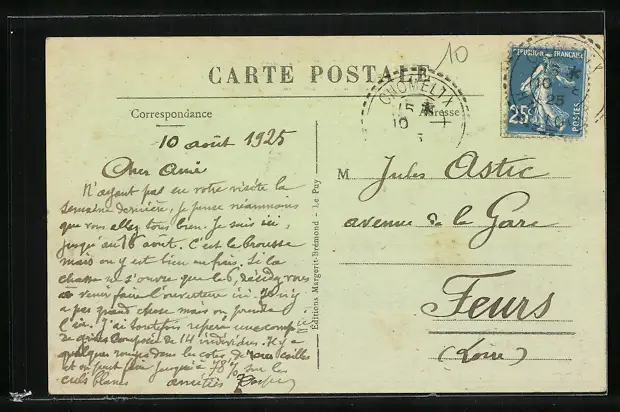 10
CARTE POSTALE
CHOMELIX
15 *
10
RÉPUBLIQUE FRANÇAISE
25c
POSTES
Correspondance
Adresse
10 août 1925
Cher Ami
N'ayant pas eu votre visite la
semaine dernière, je pense néanmoins
que vous allez tous bien. Je suis ici,
jusqu'au 16 août. C'est la brousse
mais on y est bien au frais. Si la
chasse ne s'ouvre que le 6, décidez vous
à venir faire l'ouverture ici. Il n'y
a pas grand chose mais on prendra
l'air. J'ai toutefois repéré une comp.
de grises composée de 14 individus. Il y a
quelques rouges dans les cotes, de rares cailles
et on peut faire jusqu'à 78% sur les
culs blancs
amitiés
Éditions Margerit-Brémond - Le Puy
M Jules Astic
avenue de la Gare
Feurs
(Loire)